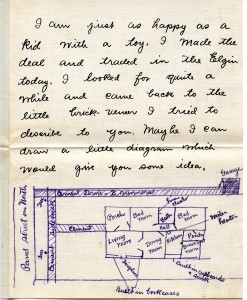 I am just as happy as a
kid with a toy. I made the
deal and traded in the Elgin
today. I looked for quite a
while and came back to the
little brick vener I treid to
describe to you. Maybe I can
draw a little diagram which
would give you some idea.
Garage
Cement Drive
Paved street on North
Cement Side walk
Cement
Porch
Bed
room
Bath
Hall
Bed
room
Living
room
Dining
room
Kitchen
Porch
Breakfast
room
Fireplace
Built in Cupboards
Built in bookcases